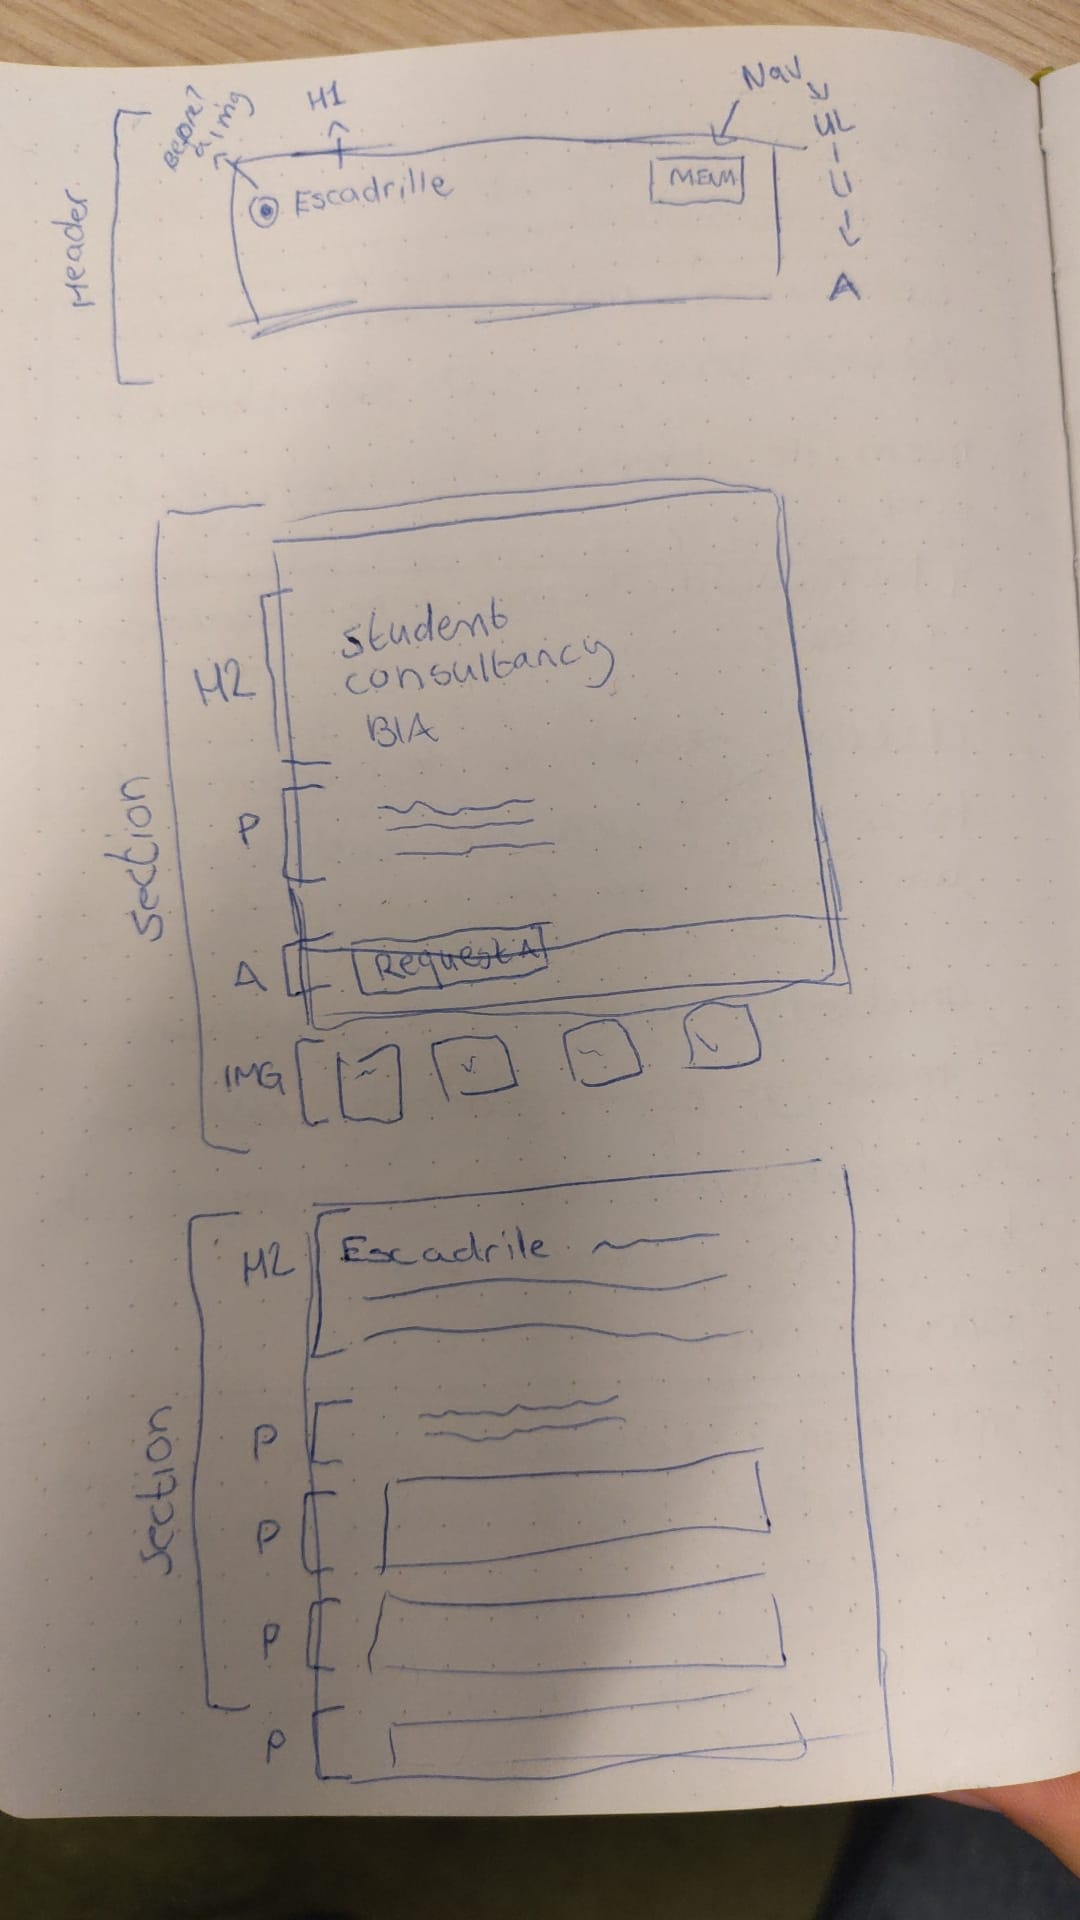 Header
Before?
a img
H1
Nav
UL
A
Escadrille
MENU
Section
H2
Student
consultancy
BIA
P
A
Request A
IMG
Section
H2
Escadrile
P
P
P
P